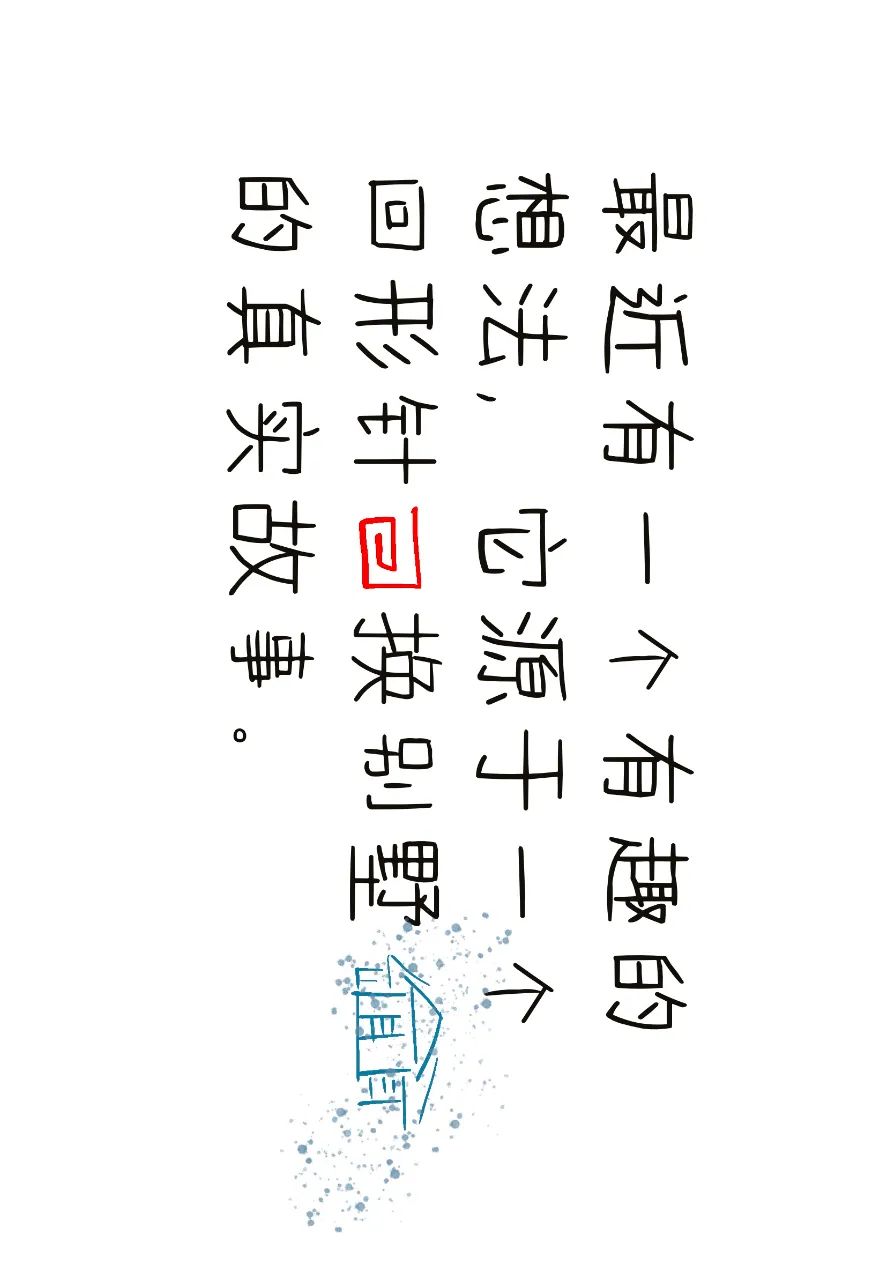 最近有一个有趣的
想法，它源于一个
回形针换别墅
的真实故事。